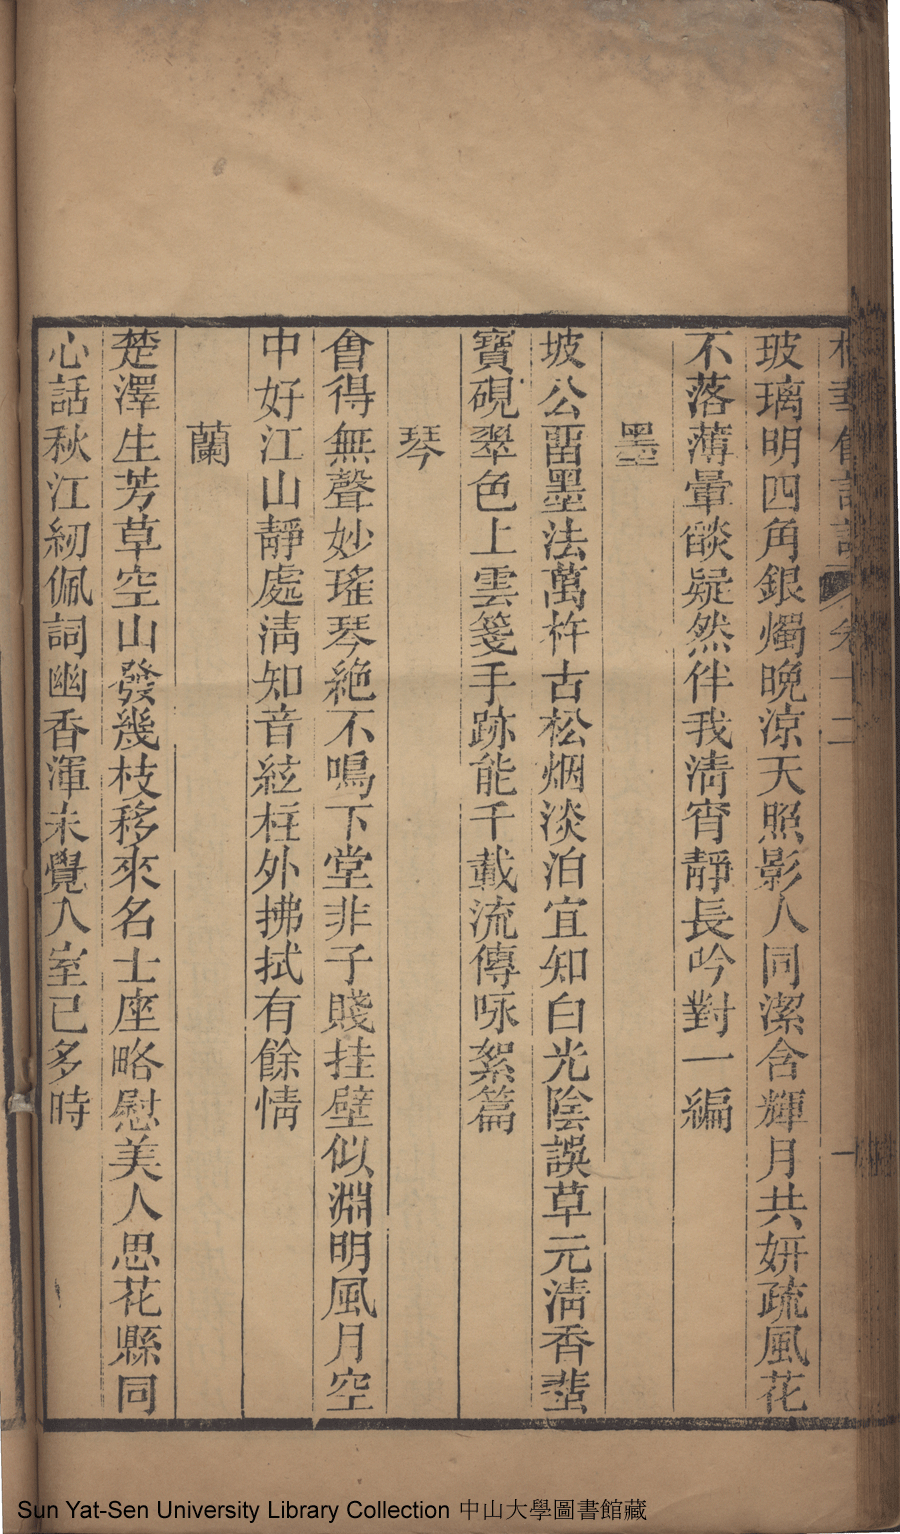 玻璃明四角銀燭晚涼天照影人同潔含輝月共妍疏風花
不落薄暈燄疑然伴我清宵靜長吟對一編
墨
坡公畱墨法萬杵古松烟淡泊宜知白光陰誤草元清香蜚
寶硯翠色上雲箋手跡能千載流傳咏絮篇
琴
會得無聲妙瑤琴絶不鳴下堂非子賤挂壁似淵明風月空
中好江山靜處清知音絃柱外拂拭有餘情
蘭
楚澤生芳草空山發幾枝移來名士座略慰美人思花縣同
心話秋江紉佩詞幽香渾未覺入室已多時
Sun Yat-Sen University Library Collection 中山大學圖書館藏